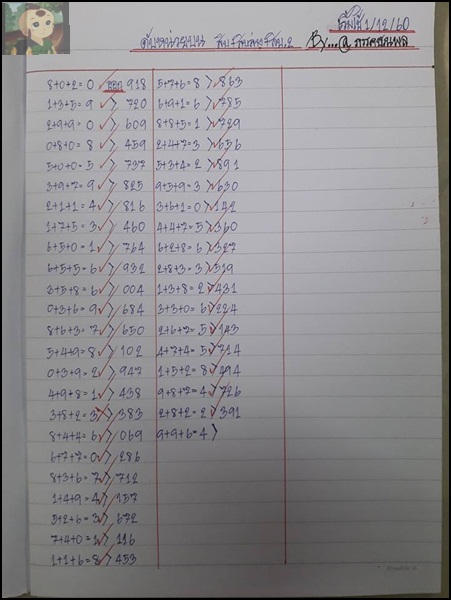 เริ่มใช้ 1/12/60
ดับหน่วยบน สิบ+สิบล่าง+สิบ.2 By...@
8+0+2=0 > ออก 918
1+3+5=9 > 720
2+9+9=0 > 609
0+8+0=8 > 459
5+0+0=5 > 737
3+9+7=9 > 825
2+1+1=4 > 816
1+7+5=3 > 460
6+5+0=1 > 764
6+5+5=6 > 932
3+5+8=6 > 004
0+3+6=9 > 684
8+6+3=7 > 650
5+4+9=8 > 102
0+3+9=2 > 947
4+9+8=1 > 438
3+8+2=3 > 383
8+4+4=6 > 069
6+7+7=0 > 286
8+3+6=7 > 712
1+4+9=4 > 157
5+2+6=3 > 672
7+4+0=1 > 116
1+1+6=8 > 453
5+7+6=8 > 863
6+9+1=6 > 785
8+8+5=1 > 729
2+4+7=3 > 656
5+3+4=2 > 891
9+5+9=3 > 630
3+6+1=0 > 142
4+4+7=5 > 360
6+2+8=6 > 327
2+8+3=3 > 519
1+3+8=2 > 431
3+3+0=6 > 224
2+6+7=5 > 143
4+7+4=5 > 714
1+5+2=8 > 494
9+8+7=4 > 726
2+8+2=2 > 391
9+9+6=4 >